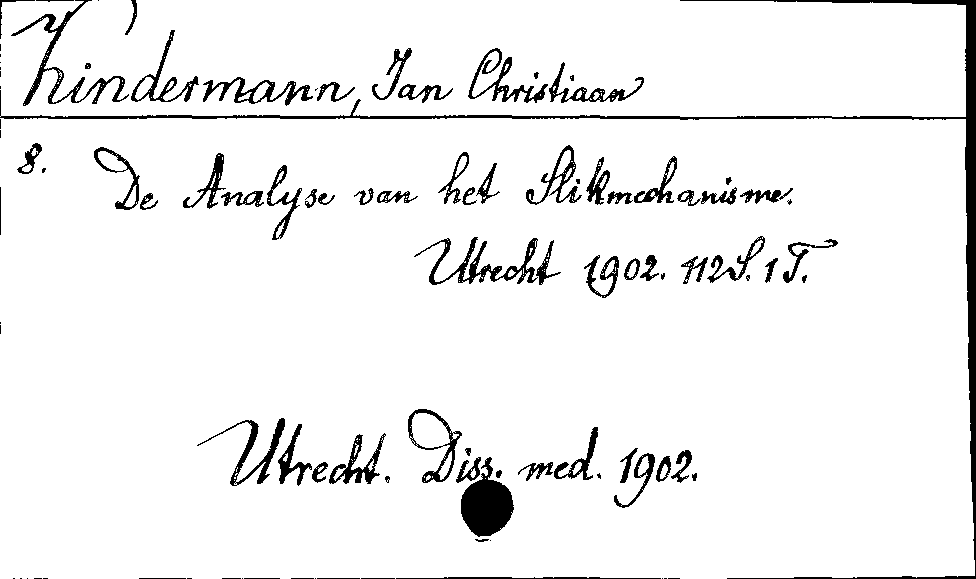 Kindermann, Jan Christiaan
8. De Analyse van het Slikmechanisme.
Utrecht 1902. 112 S. 1 T.
Utrecht. Diss. med. 1902.